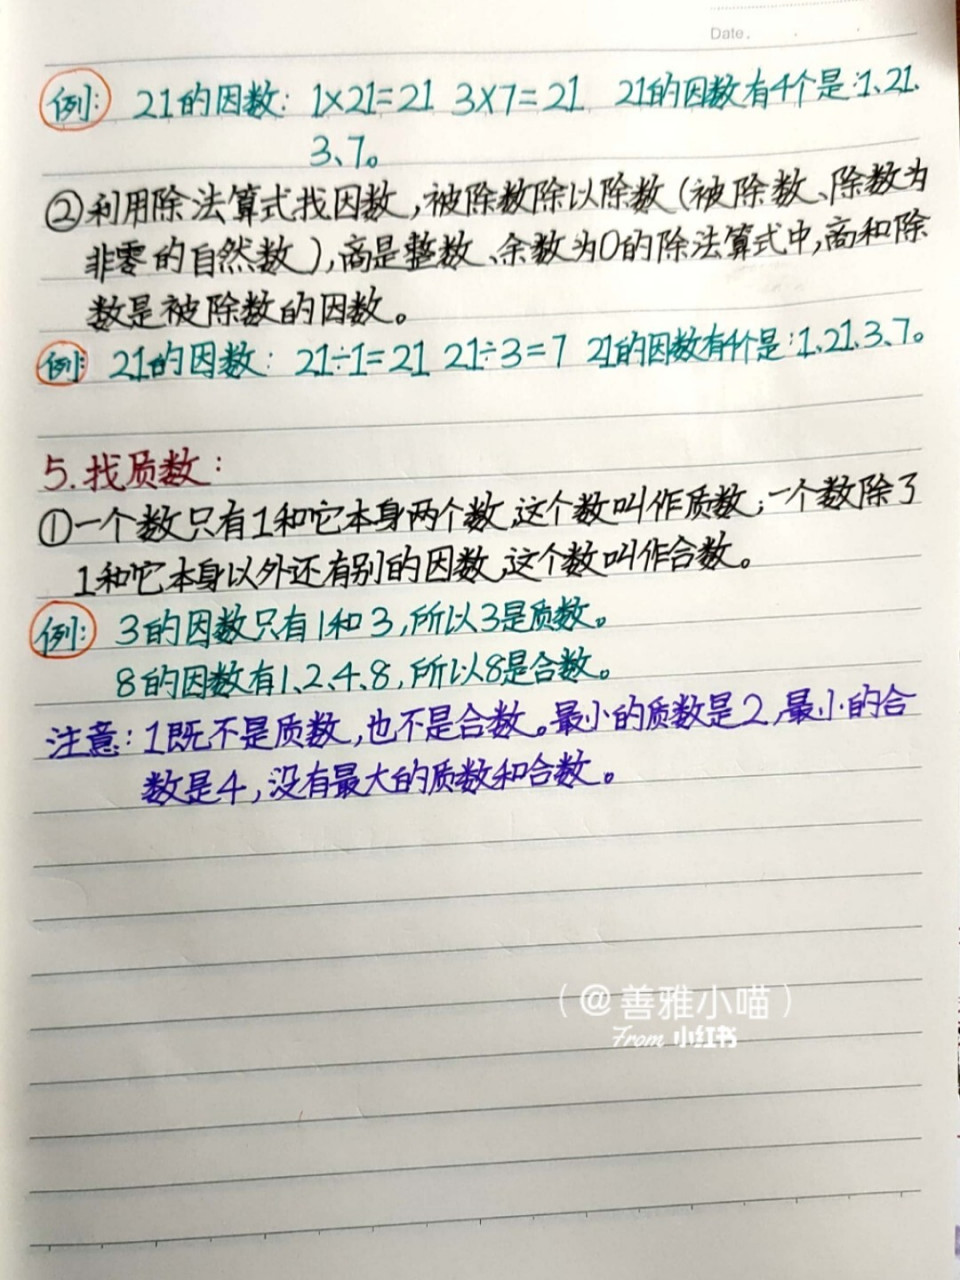 Date.
例: 21的因数: 1×21=21 3×7=21 21的因数有4个是:1、21、
3、7。
②利用除法算式找因数,被除数除以除数(被除数、除数为
非零的自然数),商是整数、余数为0的除法算式中,商和除
数是被除数的因数。
例: 21的因数: 21÷1=21 21÷3=7 21的因数有4个是:1、21、3、7。
5.找质数:
①一个数只有1和它本身两个数,这个数叫作质数;一个数除了
1和它本身以外还有别的因数,这个数叫作合数。
例: 3的因数只有1和3,所以3是质数。
8的因数有1、2、4、8,所以8是合数。
注意:1既不是质数,也不是合数。最小的质数是2,最小的合
数是4,没有最大的质数和合数。
(@善雅小喵)
From 小红书